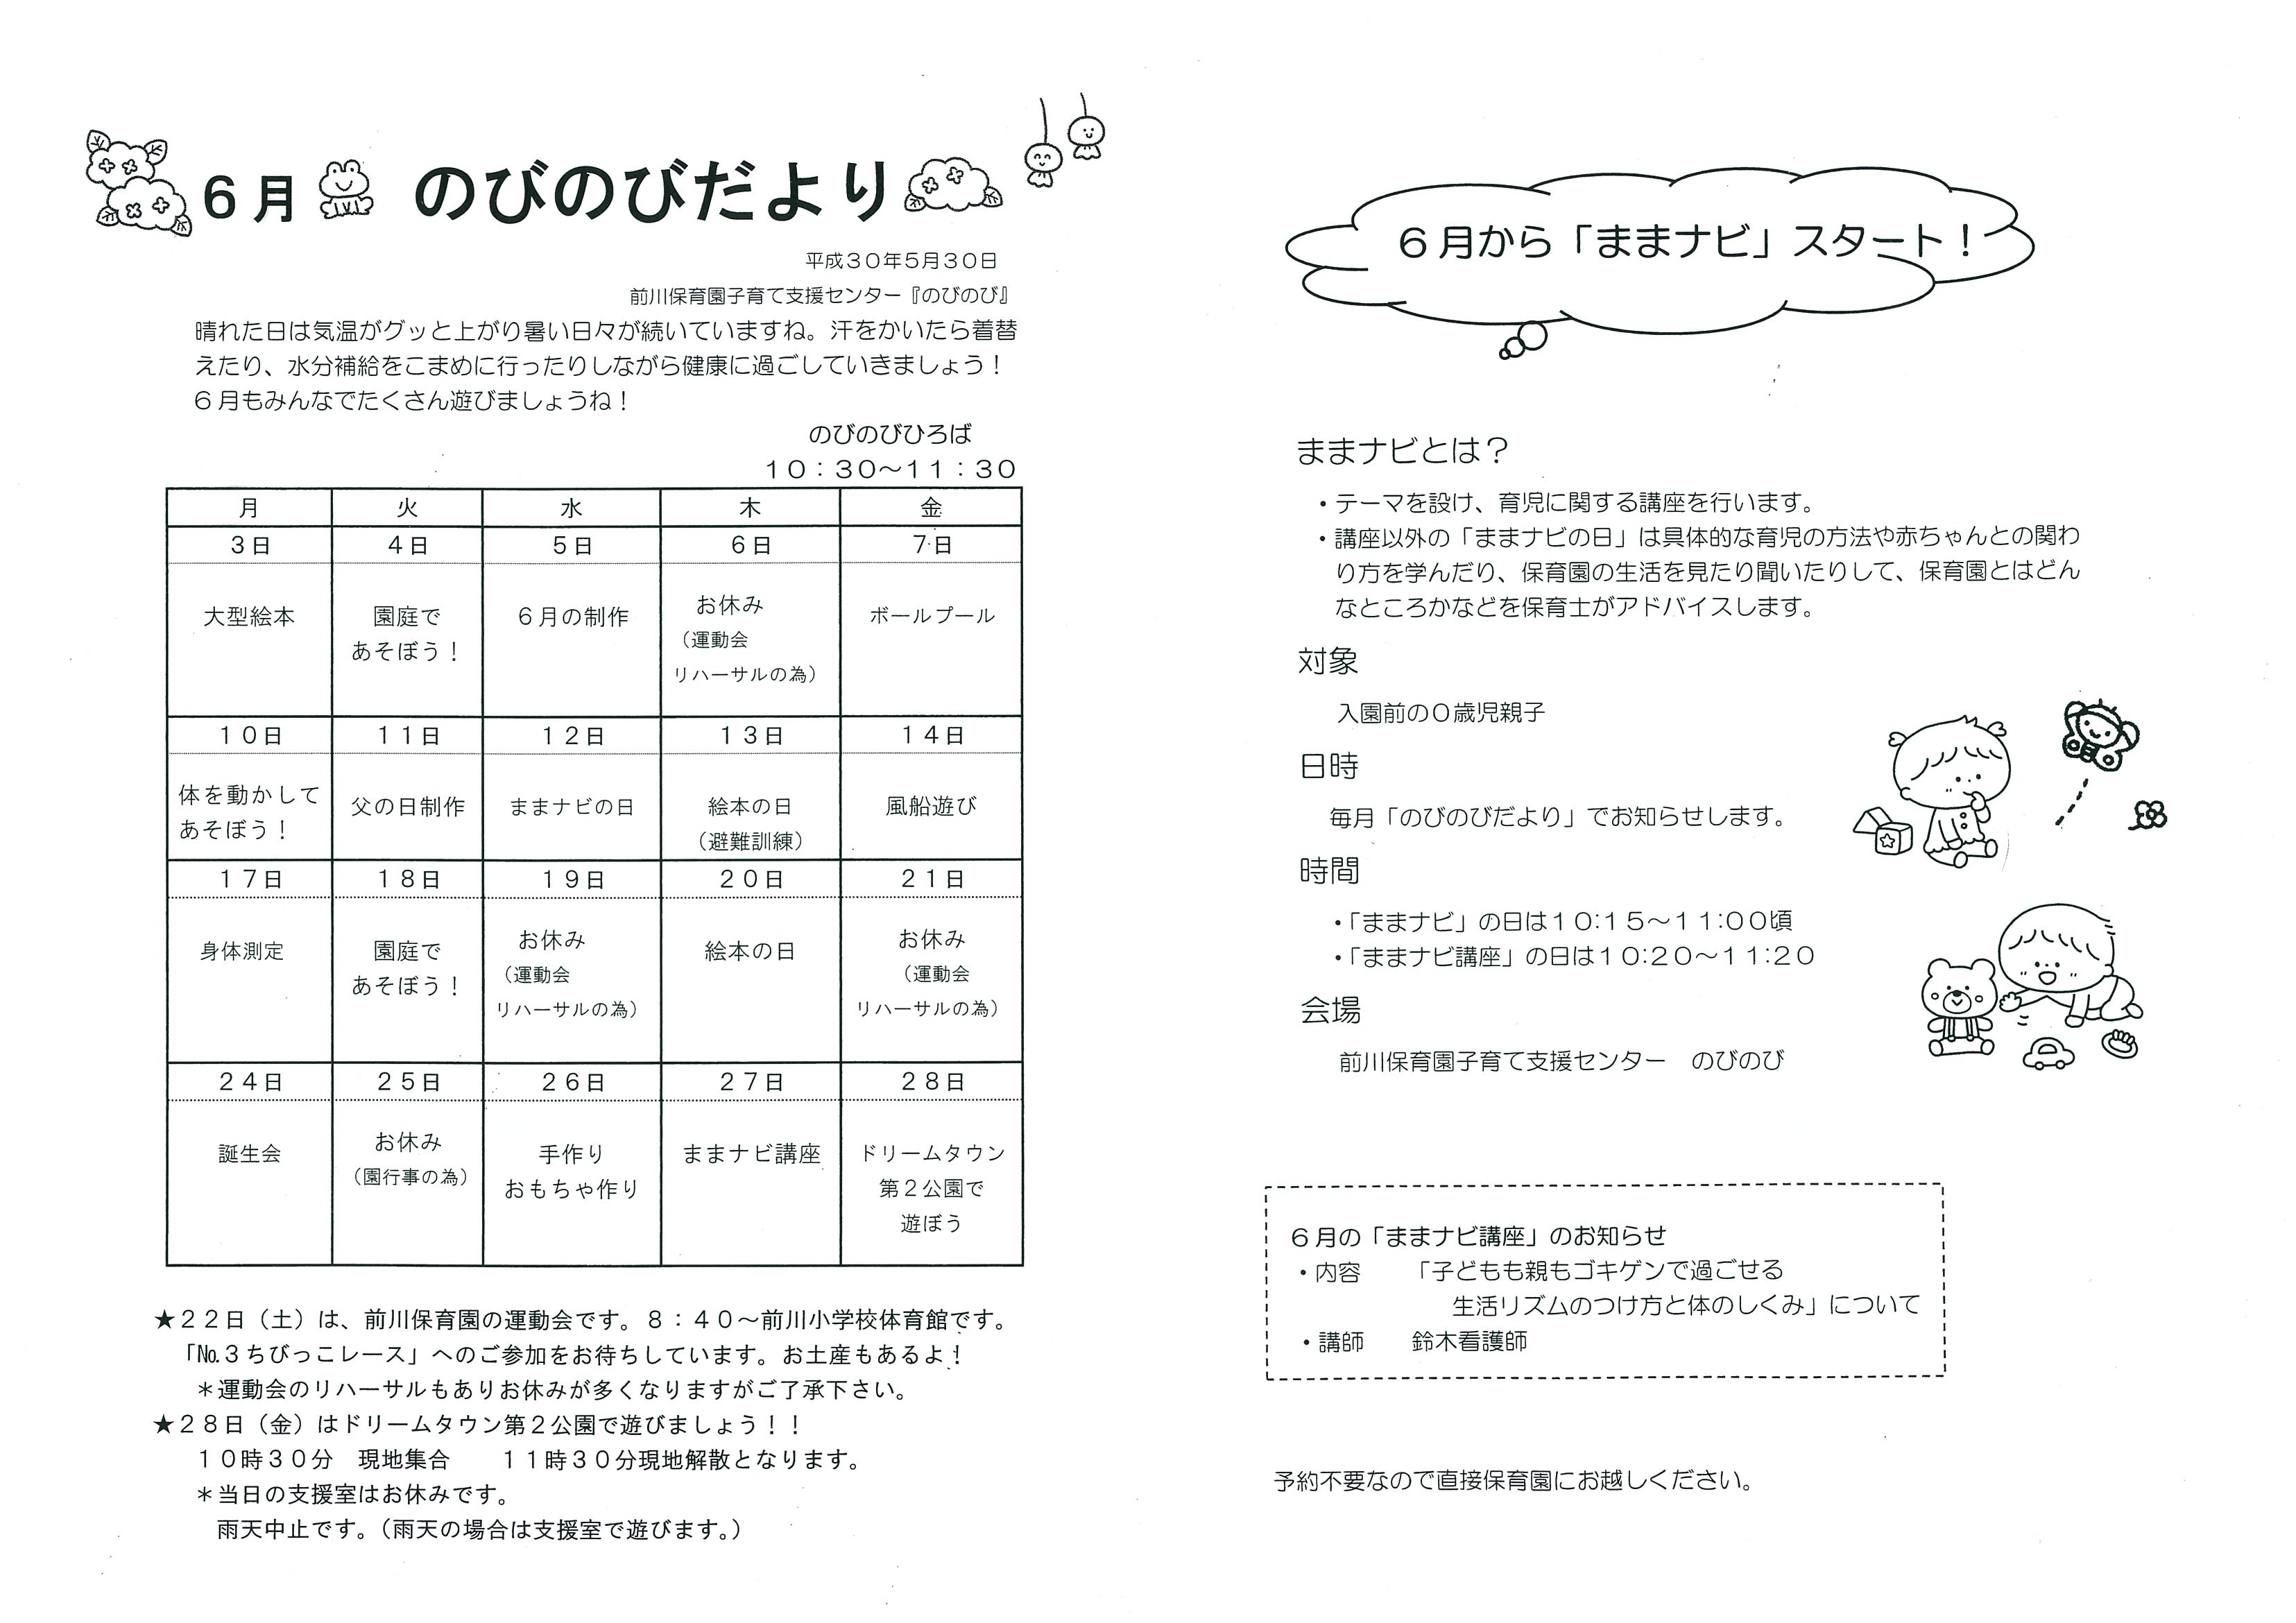 ６月　のびのびだより
平成３０年５月３０日
前川保育園子育て支援センター『のびのび』
晴れた日は気温がグッと上がり暑い日々が続いていますね。汗をかいたら着替
えたり、水分補給をこまめに行ったりしながら健康に過ごしていきましょう！
６月もみんなでたくさん遊びましょうね！
のびのびひろば
１０：３０～１１：３０
月　火　水　木　金
３日　４日　５日　６日　７日
大型絵本　園庭であそぼう！　６月の制作　お休み（運動会リハーサルの為）　ボールプール
１０日　１１日　１２日　１３日　１４日
体を動かしてあそぼう！　父の日制作　ままナビの日　絵本の日（避難訓練）　風船遊び
１７日　１８日　１９日　２０日　２１日
身体測定　園庭であそぼう！　お休み（運動会リハーサルの為）　絵本の日　お休み（運動会リハーサルの為）
２４日　２５日　２６日　２７日　２８日
誕生会　お休み（園行事の為）　手作りおもちゃ作り　ままナビ講座　ドリームタウン第２公園で遊ぼう
★２２日（土）は、前川保育園の運動会です。８：４０～前川小学校体育館です。
「№３ちびっこレース」へのご参加をお待ちしています。お土産もあるよ！
＊運動会のリハーサルもありお休みが多くなりますがご了承下さい。
★２８日（金）はドリームタウン第２公園で遊びましょう！！
１０時３０分　現地集合　　１１時３０分現地解散となります。
＊当日の支援室はお休みです。
雨天中止です。（雨天の場合は支援室で遊びます。）
６月から「ままナビ」スタート！
ままナビとは？
・テーマを設け、育児に関する講座を行います。
・講座以外の「ままナビの日」は具体的な育児の方法や赤ちゃんとの関わ
り方を学んだり、保育園の生活を見たり聞いたりして、保育園とはどん
なところかなどを保育士がアドバイスします。
対象
入園前の０歳児親子
日時
毎月「のびのびだより」でお知らせします。
時間
・「ままナビ」の日は１０：１５～１１：００頃
・「ままナビ講座」の日は１０：２０～１１：２０
会場
前川保育園子育て支援センター　のびのび
６月の「ままナビ講座」のお知らせ
・内容　　「子どもも親もゴキゲンで過ごせる
生活リズムのつけ方と体のしくみ」について
・講師　　鈴木看護師
予約不要なので直接保育園にお越しください。